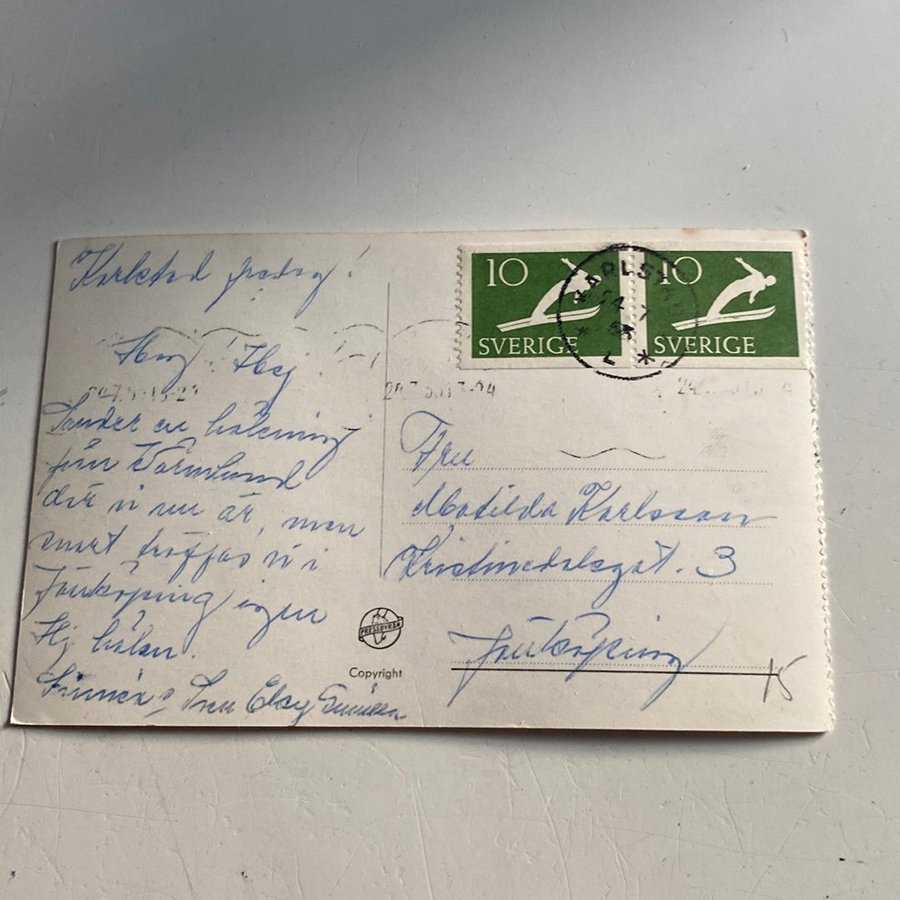 Karlstad fredag!
Hej! Hej!
Sänder en hälsning
från Värmland
där vi nu är, men
snart träffas vi i
Jönköping igen
Hej hälsn.
Elsy
10
SVERIGE
10
SVERIGE
KARLSTAD
24 7
53
L *
Fru
Matilda Karlsson
Kristinedalsgat. 3
Jönköping
15
PRESSBYRÅN
Copyright